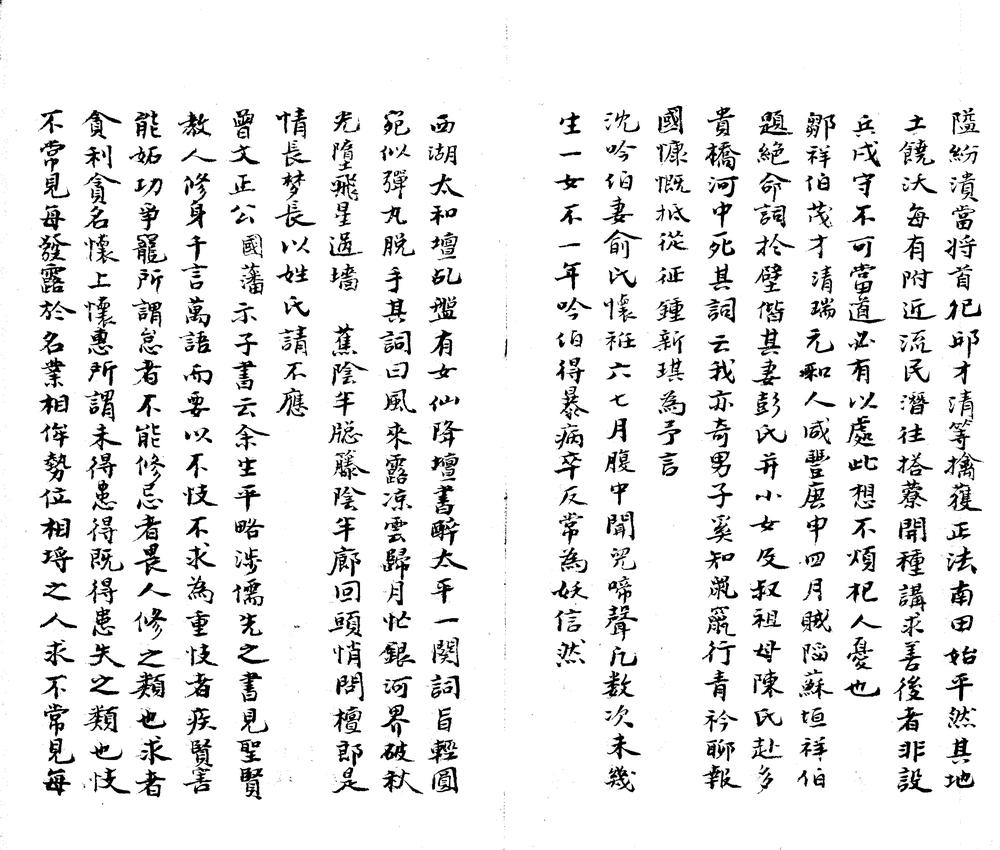 隘紛潰當將首犯邱才清等擒獲正法南田始平然其地
土饒沃每有附近流民潛往搭藔開種講求善後者非設
兵戍守不可當道必有以處此想不煩杞人憂也
鄒祥伯茂才清瑞元和人咸豐庚申四月賊陷蘇垣祥伯
題絕命詞於壁偕其妻彭氏并小女及叔祖母陳氏赴多
貴橋河中死其詞云我亦奇男子奚知鼠竄行青衿聊報
國慷慨抵從征鍾新琪為予言
沈吟伯妻俞氏懷姙六七月腹中聞兒啼聲凡数次未幾
生一女不一年吟伯得暴病卒反常為妖信然
西湖太和壇乩盤有女仙降壇書醉太平一闋詞旨輕圓
宛似彈丸脫手其詞曰風來露涼雲歸月忙銀河界破秋
光墮飛星過墻　蕉陰半牎藤陰半廊回頭悄問檀郎是
情長梦長以姓氏請不應
曾文正公國藩示子書云余生平略涉儒先之書見聖賢
教人修身千言萬語而要以不忮不求為重忮者疾賢害
能妬功爭寵所謂怠者不能修忌者畏人修之類也求者
貪利貪名懷土懷惠所謂未得患得既得患失之類也忮
不常見每發露於名業相侔勢位相埒之人求不常見每